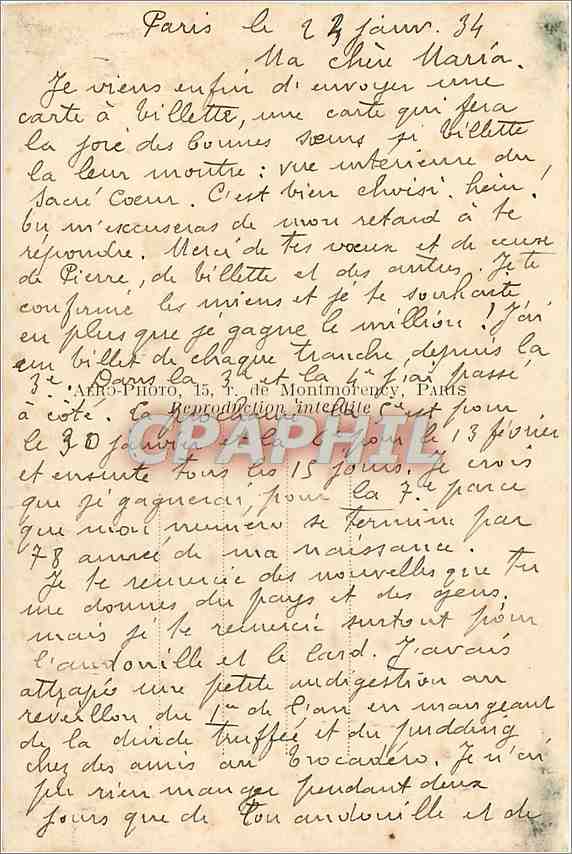 Paris le 23 janv. 34
Ma chère Maria.
Je viens enfin d'envoyer une
carte à billette, une carte qui fera
la joie des bonnes sœurs si billette
la leur montre : vue intérieure du
Sacré Coeur. C'est bien choisi. hein!
tu m'excuseras de mon retard à te
répondre. Merci de tes vœux et de ceux
de Pierre, de billette et des autres. Je te
confirme les miens et je te souhaite
en plus que je gagne le million! J'ai
un billet de chaque tranche, depuis la
3e. Dans la 3e et la 4e j'ai passé
AERO-PHOTO, 15, r. de Montmorency, PARIS
à côté. la prochaine la 5e est pour
Reproduction interdite
le 30 janvier et la 6e pour le 13 février
CPAPHIL
et ensuite tous les 15 jours. Je crois
que je gagnerai, pour la 7e parce
que mon numéro se termine par
78 année de ma naissance.
Je te remercie des nouvelles que tu
me donnes du pays et des gens.
mais je te remercie surtout pour
l'andouille et le lard. J'avais
attrapé une petite indigestion au
réveillon du 1er de l'an en mangeant
de la dinde truffée et du pudding
chez des amis au Trocadéro. Je n'ai
pu rien manger pendant deux
jours que de ton andouille et de